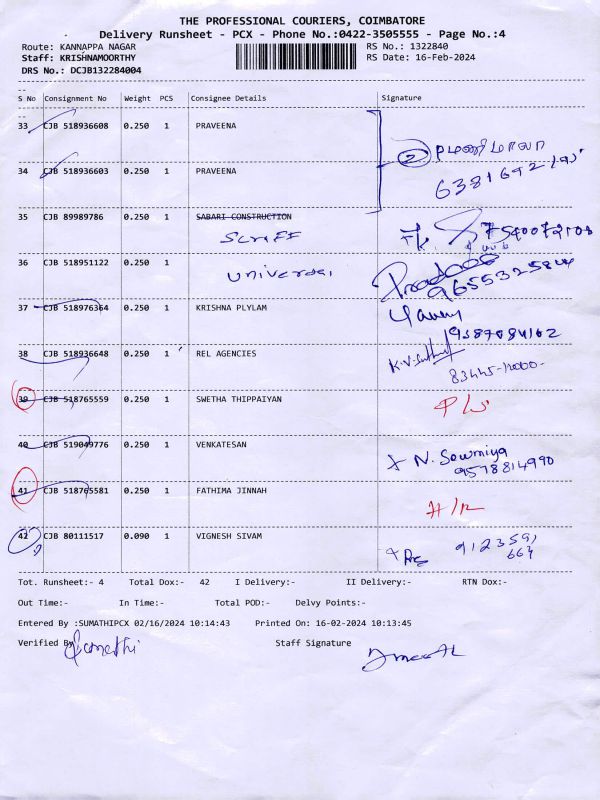 THE PROFESSIONAL COURIERS, COIMBATORE
Delivery Runsheet - PCX - Phone No.:0422-3505555 - Page No.:4
Route: KANNAPPA NAGAR RS No.: 1322840
Staff: KRISHNAMOORTHY RS Date: 16-Feb-2024
DRS No.: DCJB132284004
S No Consignment No Weight PCS Consignee Details Signature
33 CJB 518936608 0.250 1 PRAVEENA
2 மணிமாலா
34 CJB 518936603 0.250 1 PRAVEENA
35 CJB 89989786 0.250 1 SABARI CONSTRUCTION
36 CJB 518951122 0.250 1 Universal
9655325844
37 CJB 518976364 0.250 1 KRISHNA PLYLAM
9587084162
38 CJB 518936648 0.250 1 REL AGENCIES
39 CJB 518765559 0.250 1 SWETHA THIPPAIYAN
40 CJB 519049776 0.250 1 VENKATESAN
N. Sowmiya
9578814990
41 CJB 518765581 0.250 1 FATHIMA JINNAH
42 CJB 80111517 0.090 1 VIGNESH SIVAM
9123591
663
Tot. Runsheet:- 4 Total Dox:- 42 I Delivery:- II Delivery:- RTN Dox:-
Out Time:- In Time:- Total POD:- Delvy Points:-
Entered By :SUMATHIPCX 02/16/2024 10:14:43 Printed On: 16-02-2024 10:13:45
Verified By Sumathi Staff Signature